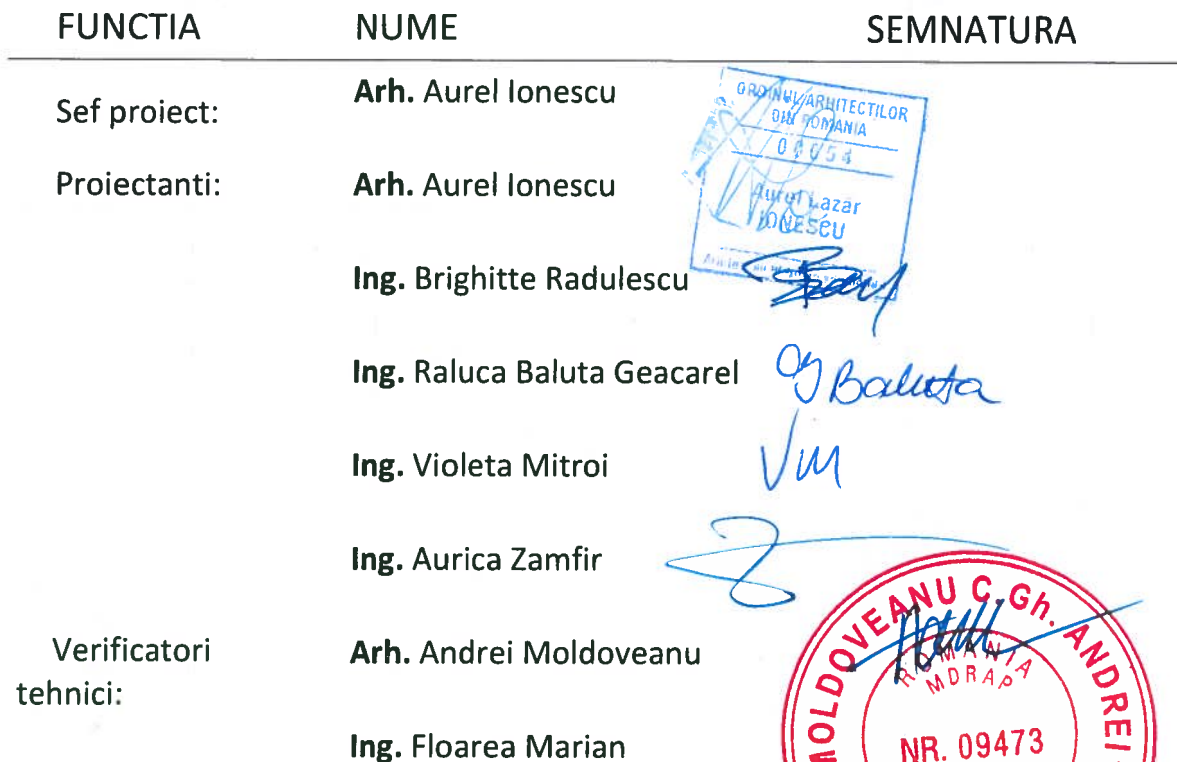 FUNCTIA NUME SEMNATURA
Sef proiect: Arh. Aurel Ionescu
ORDINUL ARHITECTILOR
DIN ROMANIA
Proiectanti: Arh. Aurel Ionescu
Aurel Lazar
IONESCU
Ing. Brighitte Radulescu
Ing. Raluca Baluta Geacarel
Baluta
Ing. Violeta Mitroi
VM
Ing. Aurica Zamfir
Verificatori
tehnici:
Arh. Andrei Moldoveanu
MOLDOVEANU C. Gh. ANDREI
ROMANIA
MDRAP
NR. 09473
Ing. Floarea Marian